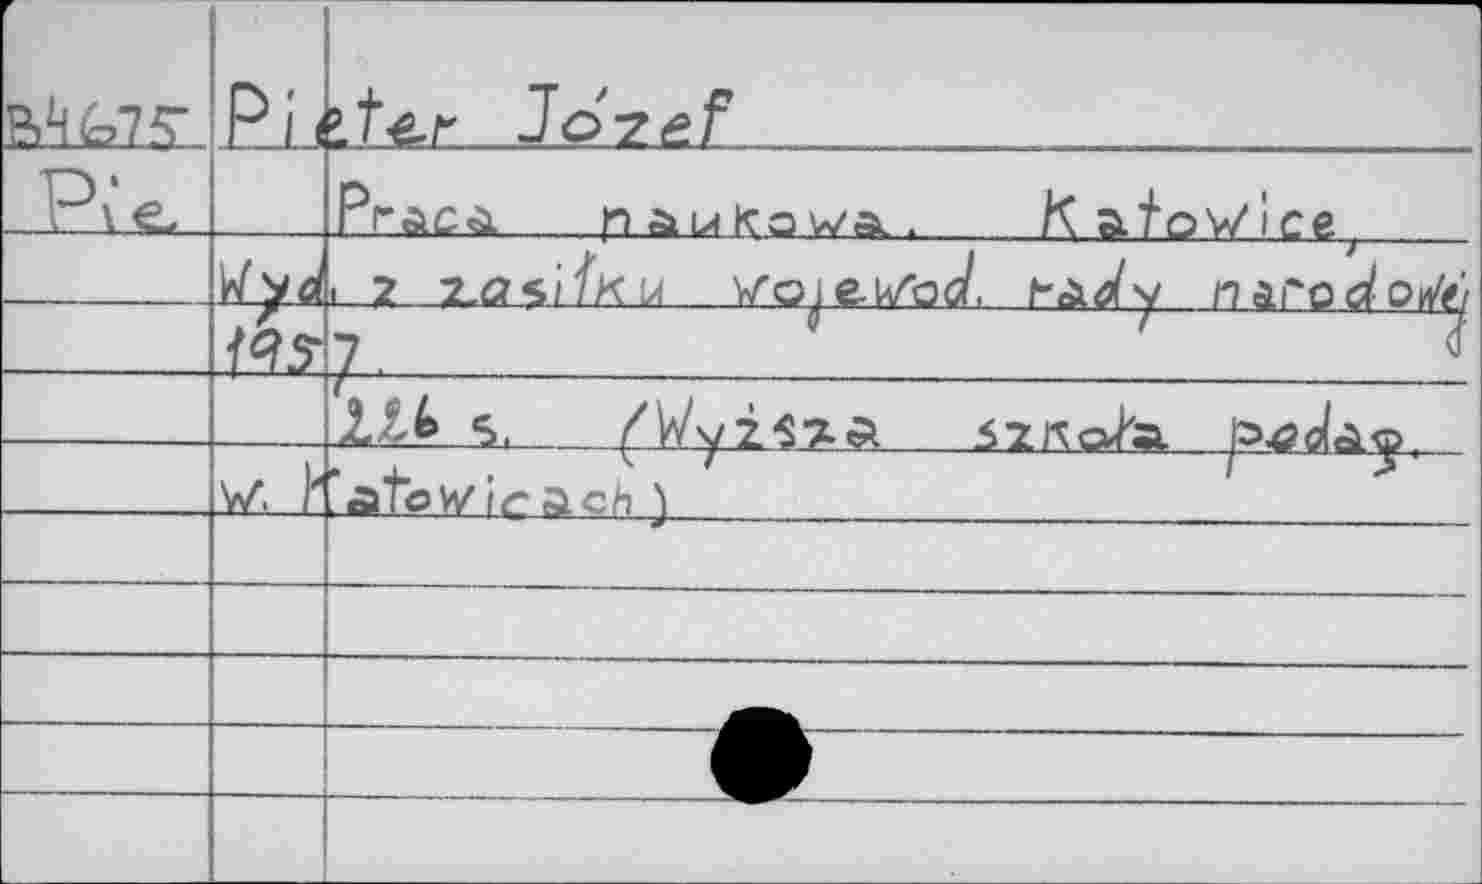 B4675 Pieter Józef
Pie. Praca naukowa. Katowice,
Wyd. z zasiłku wojewod. rady narodowej
1957.
226 s. (Wyższa szkoła pedag.
w. Katowicach)